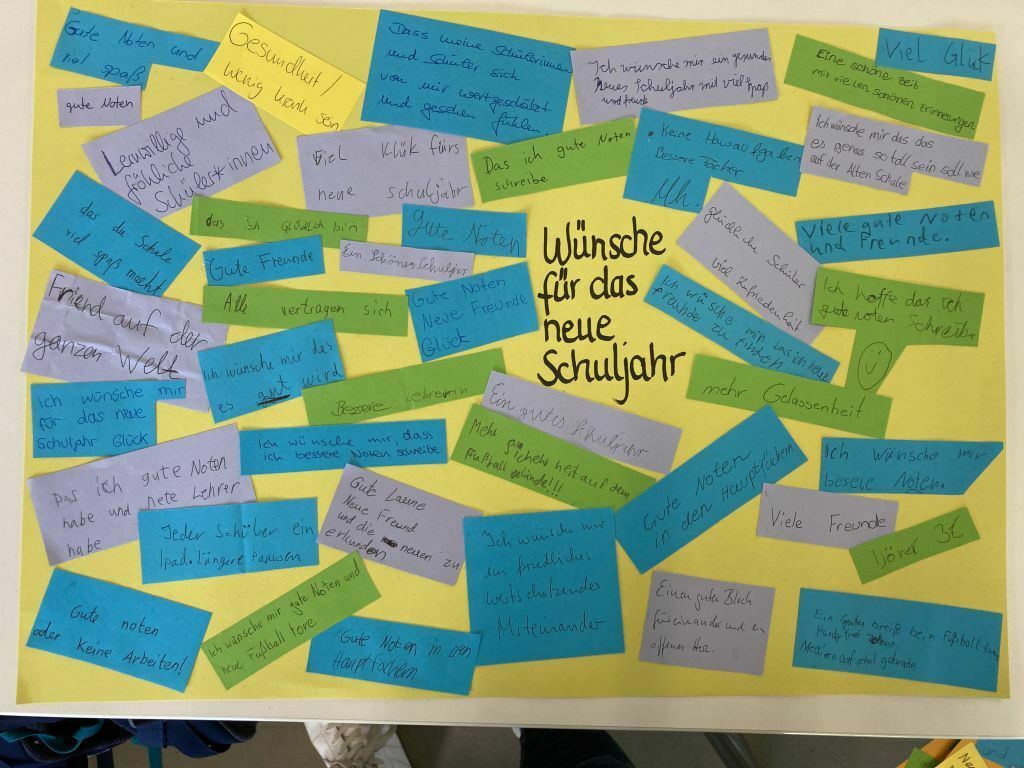 Gute Noten und
viel spaß
Gesundheit/
wenig krank sein
Dass meine Schülerinnen
und Schüler sich
von mir wertgeschätzt
und gesehen fühlen.
Ich wünsche mir ein gesundes
neues Schuljahr mit viel Spaß
und freude
Eine schöne Zeit
mit vielen schönen Erinnerungen
Viel Glük
gute Noten
Lernwillige und
fröhliche
Schüler*innen
Viel Klük fürs
neue schuljahr
Das ich gute Noten
schreibe
Keine Hausaufgaben
Bessere Fächer
Ich wünsche mir das das
es genau so toll sein soll wie
auf der Alten Schule
das die Schule
viel spaß macht
das ich Glücklich bin
Gute Noten
Gute Freunde
Ein Schönes Schuljar
glückliche Schüler
viel Zufriedenheit
Viele gute Noten
und Freunde.
Wünsche
für das
neue
Schuljahr
Friend auf der
ganzen Welt
Alle vertragen sich
Gute Noten
Neue Freunde
Glück
Ich wünsche mir das ich neue
freunde zu finden
Ich hoffe das ich
gute noten Schreibe
Ich wünsche mir das
es gut wird
Bessere Lehrerin
mehr Gelassenheit
Ich wünsche mir
für das neue
Schuljahr Glück
Ich wünsche mir, dass
ich bessere Noten schreibe.
Ein gutes Schuljahr
Mehr sicherheit auf dem
Fußball gelände!!!
Gute Noten
in den Hauptfächern
Ich wünsche mir
besere Noten.
Das ich gute Noten
habe und nete Lehrer
habe
Jeder Schüler ein
Ipad. Längere Pausen
Gute Laune
Neue Freund
und die neuen zu
erkunden
Ich wünsche mir
ein friedliches
wertschätzendes
Miteinander
Viele Freunde
Döner 3€
Gute noten
oder Keine Arbeiten!
Ich wünsche mir gute Noten und
neue Fußball tore
Gute Noten in den
Hauptfächern
Einen guten Blick
füreinander und ein
offenes Herz.
Ein Guten beim Fußball
Handy frei
Medien auf
und